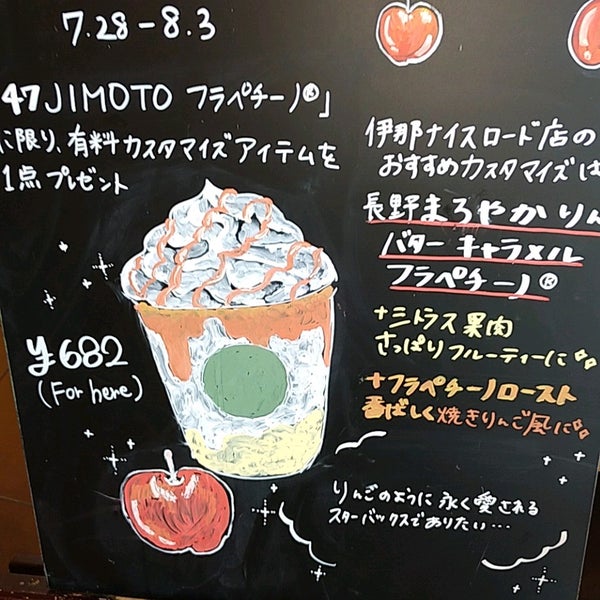 7.28-8.3
47JIMOTO フラペチーノ®」
に限り、有料カスタマイズアイテムを
1点プレゼント
¥682
(For here)
伊那ナイスロード店の
おすすめカスタマイズは
長野まろやかりん
バターキャラメル
フラペチーノ®
+シトラス果肉
さっぱりフルーティーに
+フラペチーノロースト
香ばしく焼きりんご風に
りんごのように永く愛される
スターバックスでありたい…